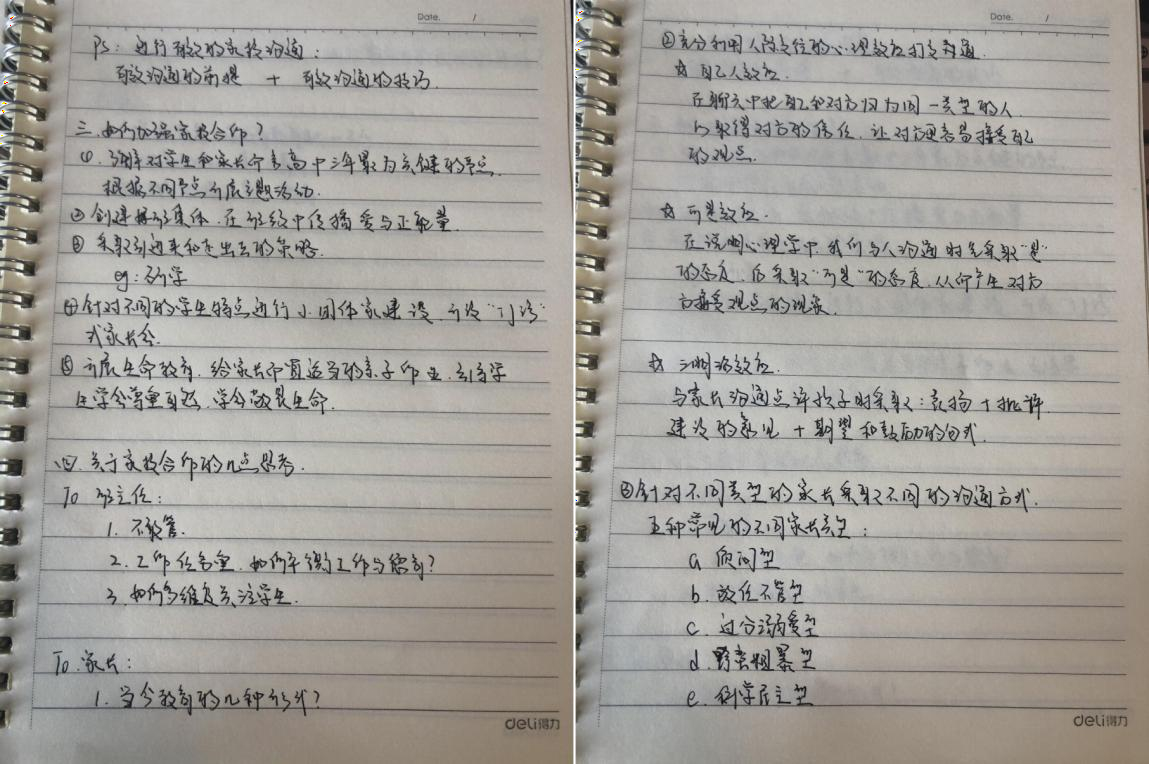 Date. /
PS: 进行有效的家校沟通:
有效沟通的前提 + 有效沟通的技巧.
三. 如何加强家校合作?
①. 班主任对学生和家长而言高中三年最为关键的节点.
根据不同节点开展主题活动.
② 创建班级集体, 在班级中传播爱与正能量.
③ 采取引进来和走出去的策略.
eg: 研学
④ 针对不同的学生特点进行小团体家建设, 开设"门诊"
式家长会.
⑤ 开展生命教育, 给家长布置适当的亲子作业, 引导学
生学会尊重自然, 学会敬畏生命.
四. 关于家校合作的几点思考.
To 班主任:
1. 不敢管.
2. 工作任务重, 如何平衡工作与德育?
3. 如何多维度关注学生.
To 家长:
1. 当今教育的几种形式?
deli得力
Date. /
② 充分利用人际交往的心理效应打交沟通.
☆ 自己人效应.
在聊天中把自己和对方归为同一类型的人
↳ 取得对方的信任, 让对方更容易接受自己
的观点.
☆ 可是效应.
在说明心理学中, 我们与人沟通时先采取"是"
的态度, 后采取"可是"的态度, 从而产生对方
方接受观点的现象.
☆ 三明治效应.
与家长沟通点评孩子时采取: 表扬 + 批评
建设的意见 + 期望和鼓励的句式.
③ 针对不同类型的家长采取不同的沟通方式.
五种常见的不同家长类型:
a. 质问型
b. 放任不管型
c. 过分溺爱型
d. 野蛮粗暴型
e. 科学民主型
deli得力